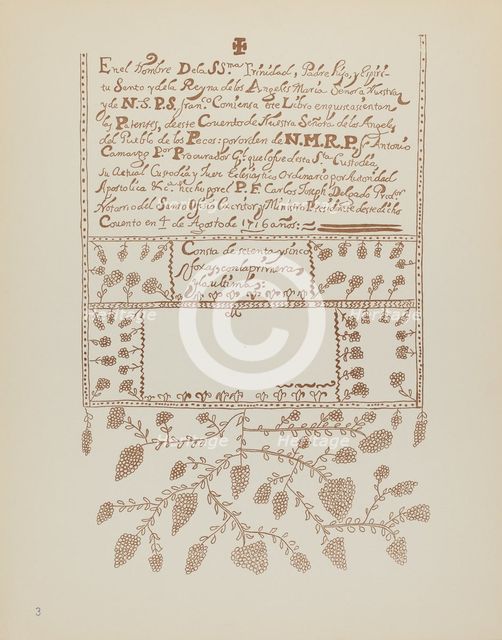 En el Nombre De la SSma Trinidad, Padre, hijo, y Espiri-
tu Santo y de la Reyna de los Angeles Maria Señora Nuestra
y de N. S. P. S. Franco Comiensa este Libro en que se asientan
las Patentes, de este Convento de Nuestra Señora de los Angeles
del Pueblo de los Pecos: por orden de N. M. R. P. fr. Antonio
Camargo Por Procurador Gl que lo fue de esta Sta Custodia
Su Actual Custodio y Juez Eclesiastico Ordinario por Autoridad
Apostolica &c. hecho por el P. F. Carlos Joseph Delgado
Notario del Santo Oficio y Ministro Presidente de dicho
Convento en 4 de Agosto de 1716 años: ~
Consta de setenta y sinco
foxas con la primera
y la ultima:
heritage
Images
Heritage
Heritage
3